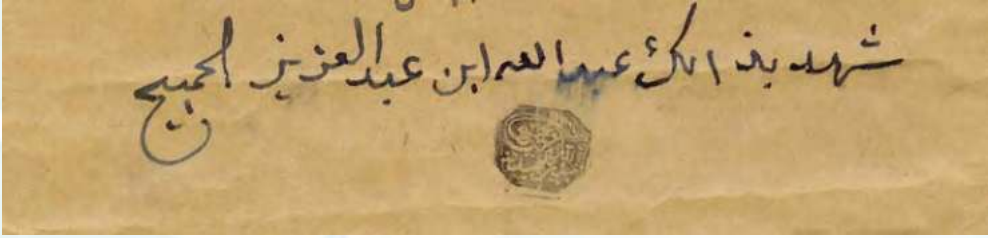 شهد بذالك عبد الله ابن عبد العزيز الجميح